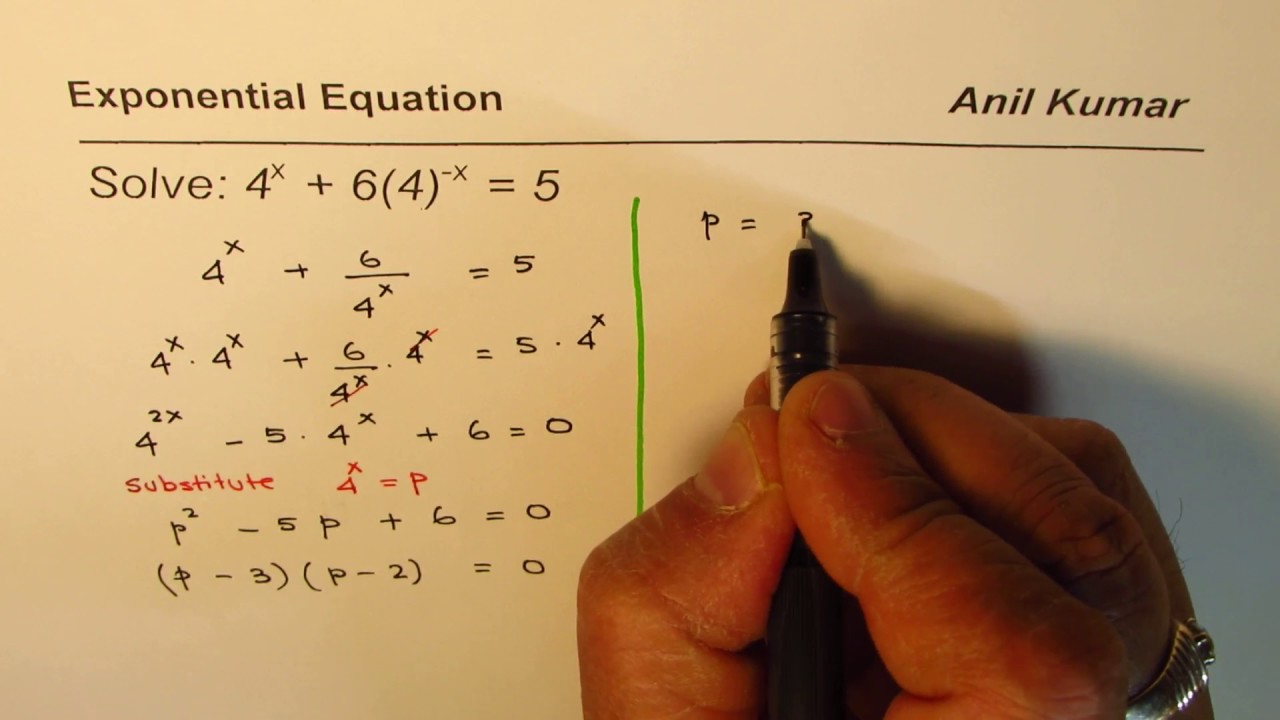 Exponential Equation
Anil Kumar
Solve: 4ˣ + 6(4)⁻ˣ = 5
4ˣ + 6/4ˣ = 5
4ˣ · 4ˣ + 6/4ˣ · 4ˣ = 5 · 4ˣ
4²ˣ - 5 · 4ˣ + 6 = 0
Substitute 4ˣ = p
p² - 5p + 6 = 0
(p - 3)(p - 2) = 0
p =